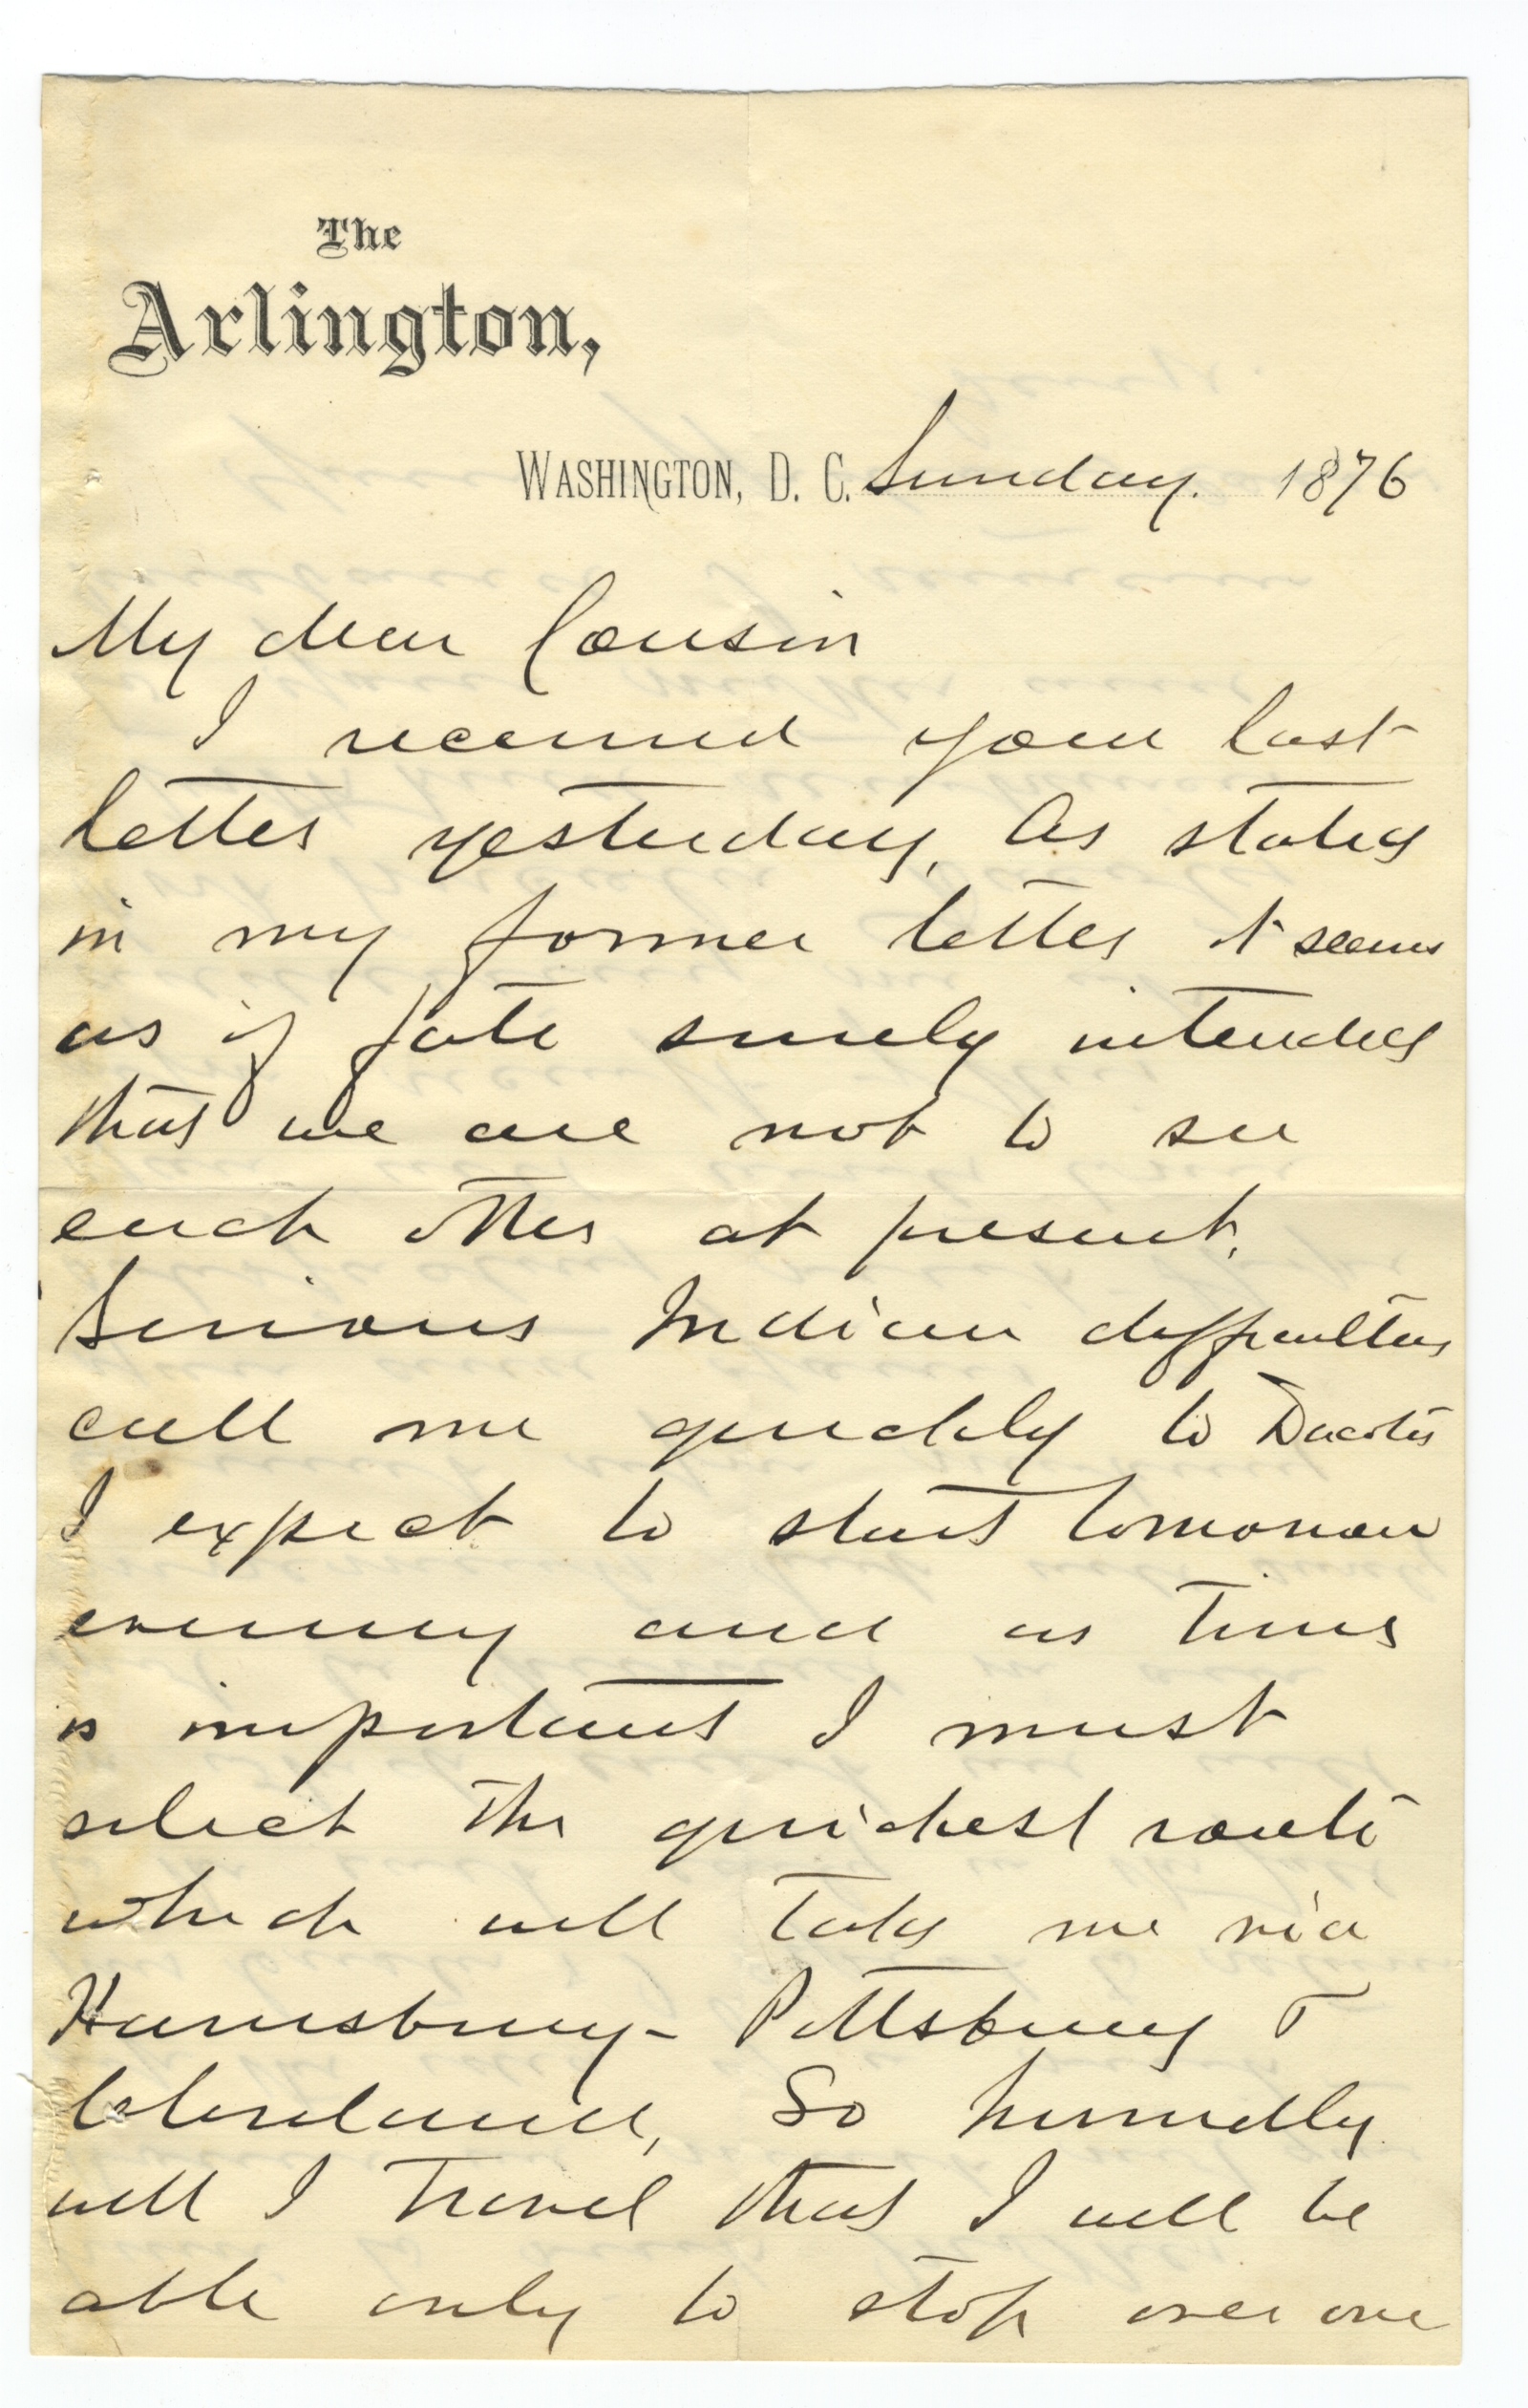 The
Arlington,
WASHINGTON, D. C. Sunday. 1876
My dear Cousin
I received your last
letter yesterday, As stated
in my former letter it seems
as if fate surely intended
that we are not to see
each other at present.
Serious Indian difficulties
call me quickly to Dacota
I expect to start tomorrow
evening and as time
is important I must
select the quickest route
which will take me via
Harrisburg - Pittsburg &
Cleveland, So hurriedly
will I travel that I will be
able only to stop over one